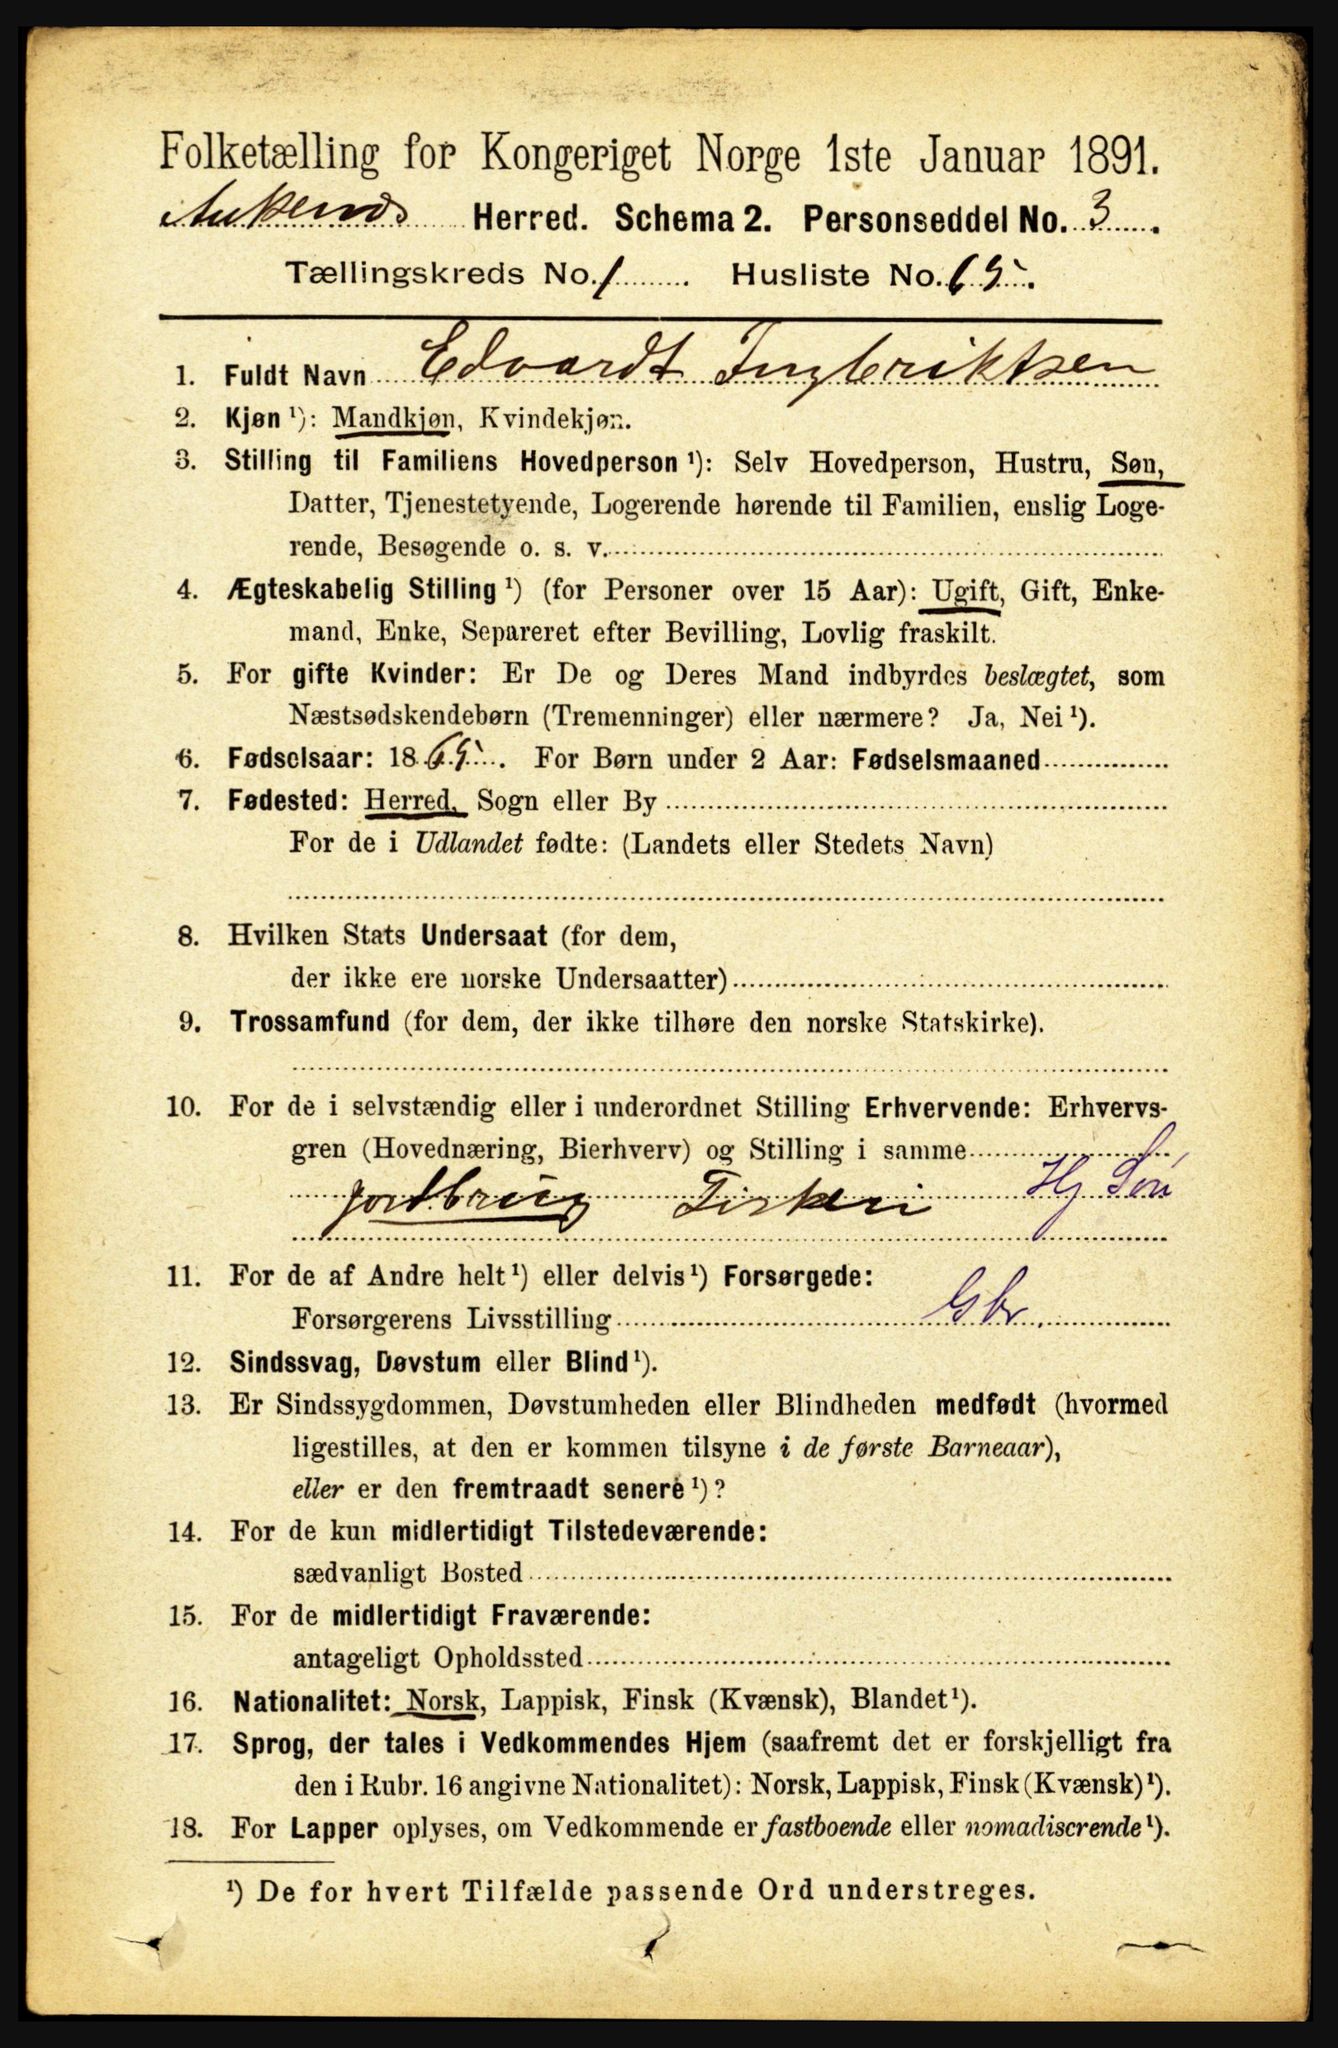 Folketælling for Kongeriget Norge 1ste Januar 1891.
Herred. Schema 2. Personseddel No. 3.
Tællingskreds No. 1. Husliste No. 65.
1. Fuldt Navn Edvardt Ingbriktsen
2. Kjøn ¹): Mandkjøn, Kvindekjøn.
3. Stilling til Familiens Hovedperson ¹): Selv Hovedperson, Hustru, Søn,
Datter, Tjenestetyende, Logerende hørende til Familien, enslig Loge-
rende, Besøgende o. s. v.
4. Ægteskabelig Stilling ¹) (for Personer over 15 Aar): Ugift, Gift, Enke-
mand, Enke, Separeret efter Bevilling, Lovlig fraskilt.
5. For gifte Kvinder: Er De og Deres Mand indbyrdes beslægtet, som
Næstsødskendebørn (Tremenninger) eller nærmere? Ja, Nei ¹).
6. Fødselsaar: 1865. For Børn under 2 Aar: Fødselsmaaned
7. Fødested: Herred, Sogn eller By
For de i Udlandet fødte: (Landets eller Stedets Navn)
8. Hvilken Stats Undersaat (for dem,
der ikke ere norske Undersaatter)
9. Trossamfund (for dem, der ikke tilhøre den norske Statskirke).
10. For de i selvstændig eller i underordnet Stilling Erhvervende: Erhvervs-
gren (Hovednæring, Bierhverv) og Stilling i samme
jordbrug Fiskeri Hj Søn
11. For de af Andre helt ¹) eller delvis ¹) Forsørgede:
Forsørgerens Livsstilling Gbr.
12. Sindssvag, Døvstum eller Blind ¹).
13. Er Sindssygdommen, Døvstumheden eller Blindheden medfødt (hvormed
ligestilles, at den er kommen tilsyne i de første Barneaar),
eller er den fremtraadt senere ¹)?
14. For de kun midlertidigt Tilstedeværende:
sædvanligt Bosted
15. For de midlertidigt Fraværende:
antageligt Opholdssted
16. Nationalitet: Norsk, Lappisk, Finsk (Kvænsk), Blandet ¹).
17. Sprog, der tales i Vedkommendes Hjem (saafremt det er forskjelligt fra
den i Rubr. 16 angivne Nationalitet): Norsk, Lappisk, Finsk (Kvænsk) ¹).
18. For Lapper oplyses, om Vedkommende er fastboende eller nomadiserende ¹).
¹) De for hvert Tilfælde passende Ord understreges.